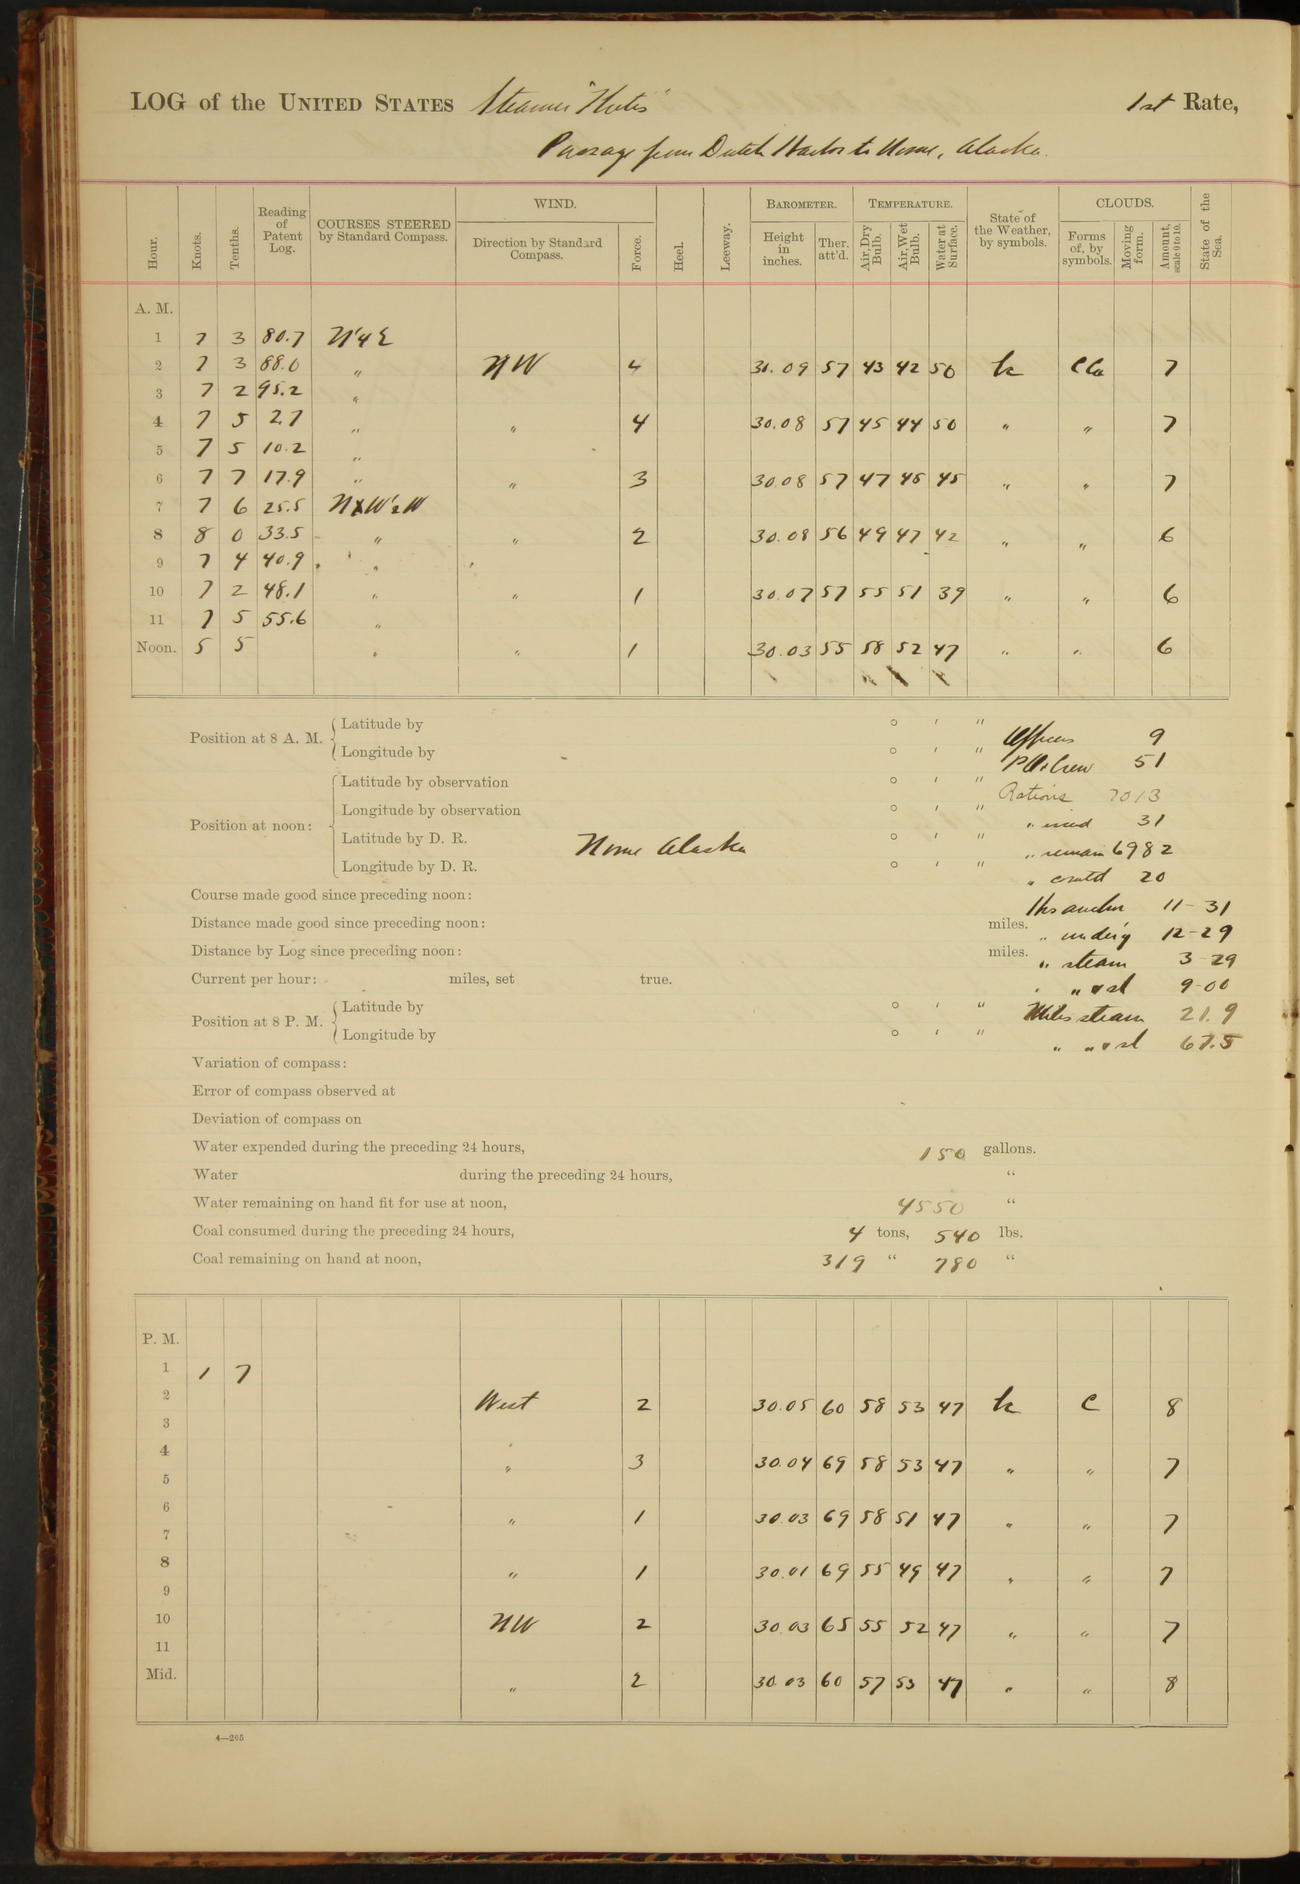 LOG of the UNITED STATES Steamer "Thetis" 1st Rate,
Passage from Dutch Harbor to Nome, Alaska.
Hour. Knots. Tenths. Reading of Patent Log. COURSES STEERED by Standard Compass. WIND. Direction by Standard Compass. Force. Heel. Leeway. BAROMETER. Height in inches. Ther. att'd. TEMPERATURE. Air, Dry Bulb. Air, Wet Bulb. Water at Surface. State of the Weather, by symbols. CLOUDS. Forms of, by symbols. Moving form. Amount, scale 0 to 10. State of the Sea.
A. M.
1 7 3 80.7 N¼E
2 7 3 88.0 " NW 4 30.09 57 43 42 50 bc
3 7 2 95.2 "
4 7 5 2.7 " " 4 30.08 57 45 44 50 " " 7
5 7 5 10.2 "
6 7 7 17.9 " " 3 30.08 57 47 45 45 " " 7
7 7 6 25.5 NxW½W
8 8 0 33.5 " " 2 30.08 56 49 47 42 " " 6
9 7 4 40.9 "
10 7 2 48.1 " " 1 30.07 57 55 51 39 " " 6
11 7 5 55.6 "
Noon. 5 5 " " 1 30.03 55 58 52 47 " " 6
Position at 8 A. M. Latitude by ° ′ ″
Longitude by ° ′ ″
Officers 9
Position at noon: Latitude by observation ° ′ ″
Longitude by observation ° ′ ″
Latitude by D. R. ° ′ ″
Longitude by D. R. ° ′ ″
Nome Alaska
51
Rations 7013
" used 31
" remain 6982
" comtd 20
Course made good since preceding noon:
Hrs anchor 11-31
Distance made good since preceding noon: miles.
" under'y 12-29
Distance by Log since preceding noon: miles.
" steam 3-29
Current per hour: miles, set true.
" " & sl 9-00
Position at 8 P. M. Latitude by ° ′ ″
Longitude by ° ′ ″
Miles steam 21.9
" " & sl 67.5
Variation of compass:
Error of compass observed at
Deviation of compass on
Water expended during the preceding 24 hours, 150 gallons.
Water during the preceding 24 hours, "
Water remaining on hand fit for use at noon, 4550 "
Coal consumed during the preceding 24 hours, 4 tons, 540 lbs.
Coal remaining on hand at noon, 319 " 780 "
P. M.
1 1 7
2 West 2 30.05 60 58 53 47 bc C 8
3
4 " 3 30.04 69 58 53 47 " " 7
5
6 " 1 30.03 69 58 51 47 " " 7
7
8 " 1 30.01 69 55 49 47 " " 7
9
10 NW 2 30.03 65 55 52 47 " " 7
11
Mid. " 2 30.03 60 57 53 47 " " 8
4—205